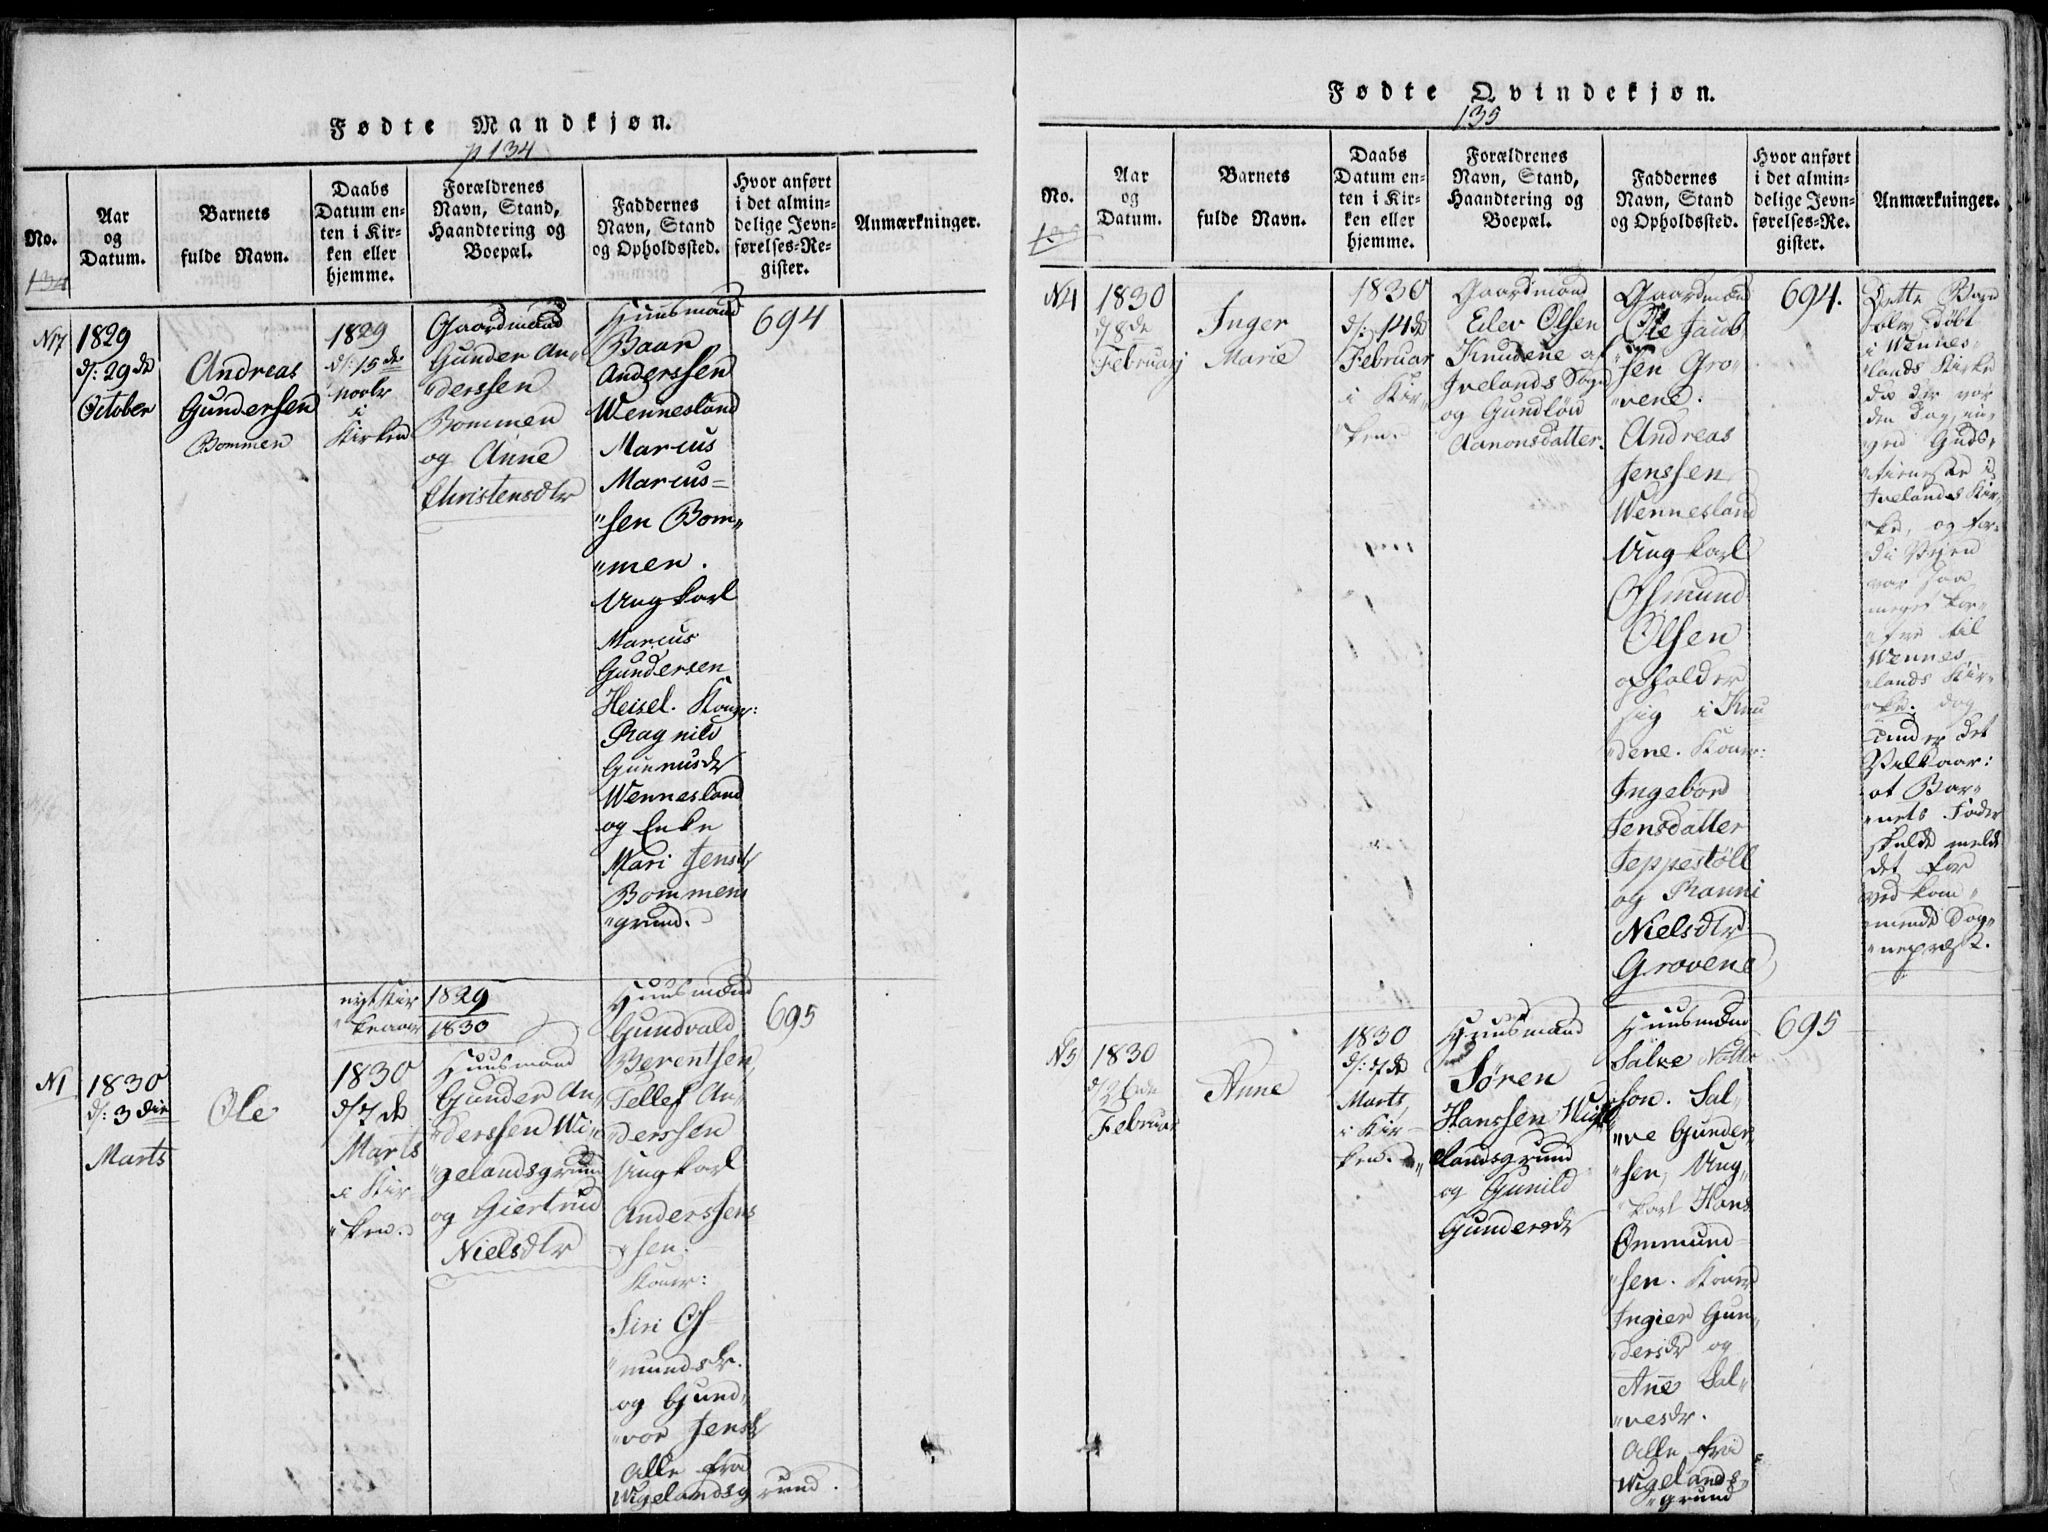 Fødte Mandkjøn.
p 134
No.
134
Aar
og
Datum.
Barnets
fulde Navn.
Daabs
Datum en-
ten i Kir-
ken eller
hjemme.
Forældrenes
Navn, Stand,
Haandtering og
Boepæl.
Faddernes
Navn, Stand
og Opholdssted.
Hvor anført
i det almin-
delige Jevn-
førelses-Re-
gister.
Anmærkninger.
N 17
1829
d: 29 de
October
Andreas
Gundersen
Bommen
1829
d: 15 de
novbr
i
Kirken
Gaardmand
Gunder An-
"derssen
Bommen
og Anne
Christensdtr
Huusmænd
Baar
Anderssen
Wennesland
Marcus
Marcus=
"sen Bom"
"men.
Ungkarl
Marcus
Gundersen
Heisel. Koner:
Ragnild
Gunnusdr
Wennesland
og Enke
Mari Jensdr
Bommens
"grund.
694
nyt Kir
"keaar
1829
1830
N 1
1830
d: 3 die
Marts
Ole
1830
d/7 de
Marts
i Kir-
"ken.
Huusmand
Gunder An-
"derssen Wi-
"gelandsgrund
og Giertrud
Nielsdtr
Huusmænd
Gundvald
Berentsen,
Tellef An-
"derssen
Ungkarl
Anderssens
"sen.
Koner:
Siri Os-
"mundsdr.
og Gund-
"vor Jensdr
Alle fra
Wigelandsgrund.
695
Fødte Qvindekjøn.
135
No.
135
Aar
og
Datum.
Barnets
fulde Navn.
Daabs
Datum en-
ten i Kir-
ken eller
hjemme.
Forældrenes
Navn, Stand,
Haandtering og
Boepæl.
Faddernes
Navn, Stand
og Opholdssted.
Hvor anført
i det almin-
delige Jevn-
førelses-Re-
gister.
Anmærkninger.
N 4
1830
d/8 de
Februarj
Inger
Marie
1830
d: 14 de
Februar
i Kir-
"ken.
Gaardmand
Eilev Olsen
Knudene af
Ivelands Sogn
og Gundløu
Aanonsdatter.
Gaardmænd
Ole Jacob
"sen Gro-
"vene.
Andreas
Jenssen
Wennesland
Ungkarl
Osmund
Olsen
opholder
sig i Knu
"dene. Koner:
Ingebor
Jensdatter
Jeppestøll
og Ranni
Nielsdtr
Grovene
694.
Dette Barn
blev døbt
i Wennes-
"lands Kirke
da der var
den Dag in-
"gen Guds-
"tieneste i
Ivelands Kir-
"ke, og for-
di Veien
var saa
meget kor-
"tere til
Wennes-
"lands Kir-
"ke; dog
under det
Vilkaar:
at Bar-
"nets Fader
skulde melde
det for
vedkom-
"mende Sog-
"nepræst.
N 5
1830
Februar
Anne
1830
d: 7 de
Marts
i Kir-
ken.
Huusmand
Søren
Hanssen Wige
"landsgrund
og Gunild
Gundersdr
Huusmænd
Salve Natte
"son. Sal-
"ve Gunder
"sen, Ung-
"karl Hans
Ommund
"sen. Koner
Ingier Gun-
"dersdr og
Ane Sal-
"vesdr.
Alle fra
Wigelands
"grund
695